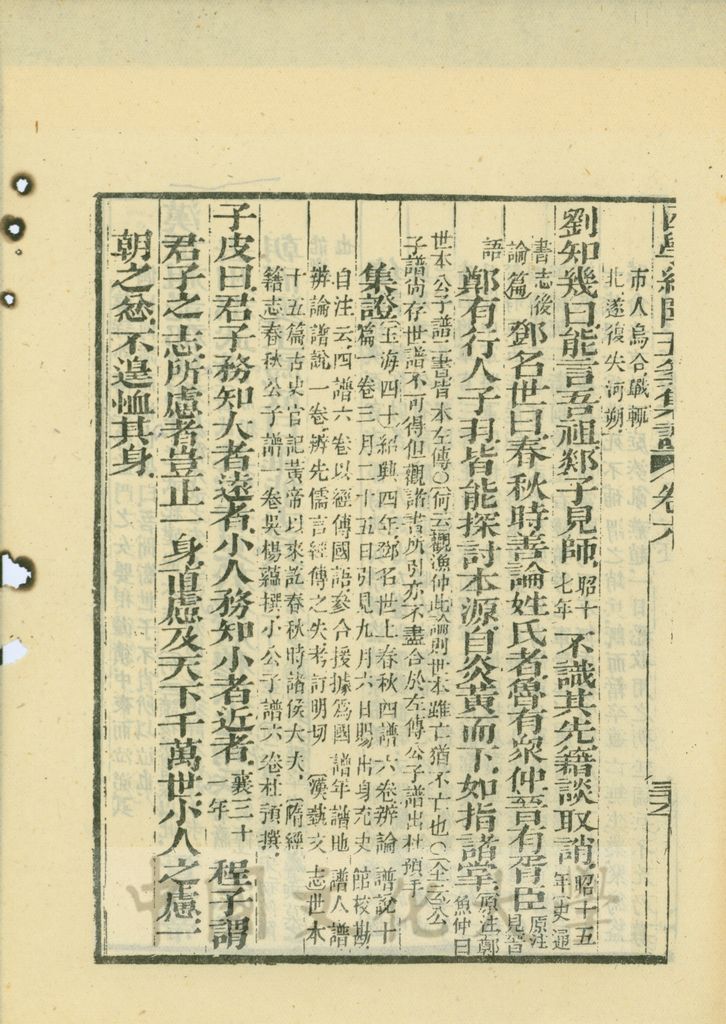 市人烏合戰輒
北遂復失河朔
劉知幾曰能言吾祖郯子見師昭十七年不識其先籍談取誚昭十五年史通
書志後論篇鄧名世曰春秋時善論姓氏者魯有眾仲晉有胥臣原注見晉
語鄭有行人子羽皆能探討本源自炎黃而下如指諸掌原注鄭魚仲曰
世本公子譜二書皆本左傳○何云觀漁仲此論則世本雖亡猶不亡也○全云公
子譜尚存世譜不可得但觀諸書所引亦不盡合於左傳公子譜出杜預手
集證玉海四十紹興四年鄧名世上春秋四譜六卷辨論譜說十
篇一卷三月二十五日引見九月六日賜出身充史館校勘
自注云四譜六卷以經傳國語參合援據為國譜年譜地譜人譜
辨論譜說一卷辨先儒言經傳之失考訂明切 漢藝文志世本
十五篇古史官記黃帝以來訖春秋時諸侯大夫 隋經
籍志春秋公子譜一卷吳楊蘊撰小公子譜六卷杜預撰
子皮曰君子務知大者遠者小人務知小者近者襄三十一年程子謂
君子之志所慮者豈止一身直慮及天下千萬世小人之慮一
朝之忿不遑恤其身
卷六